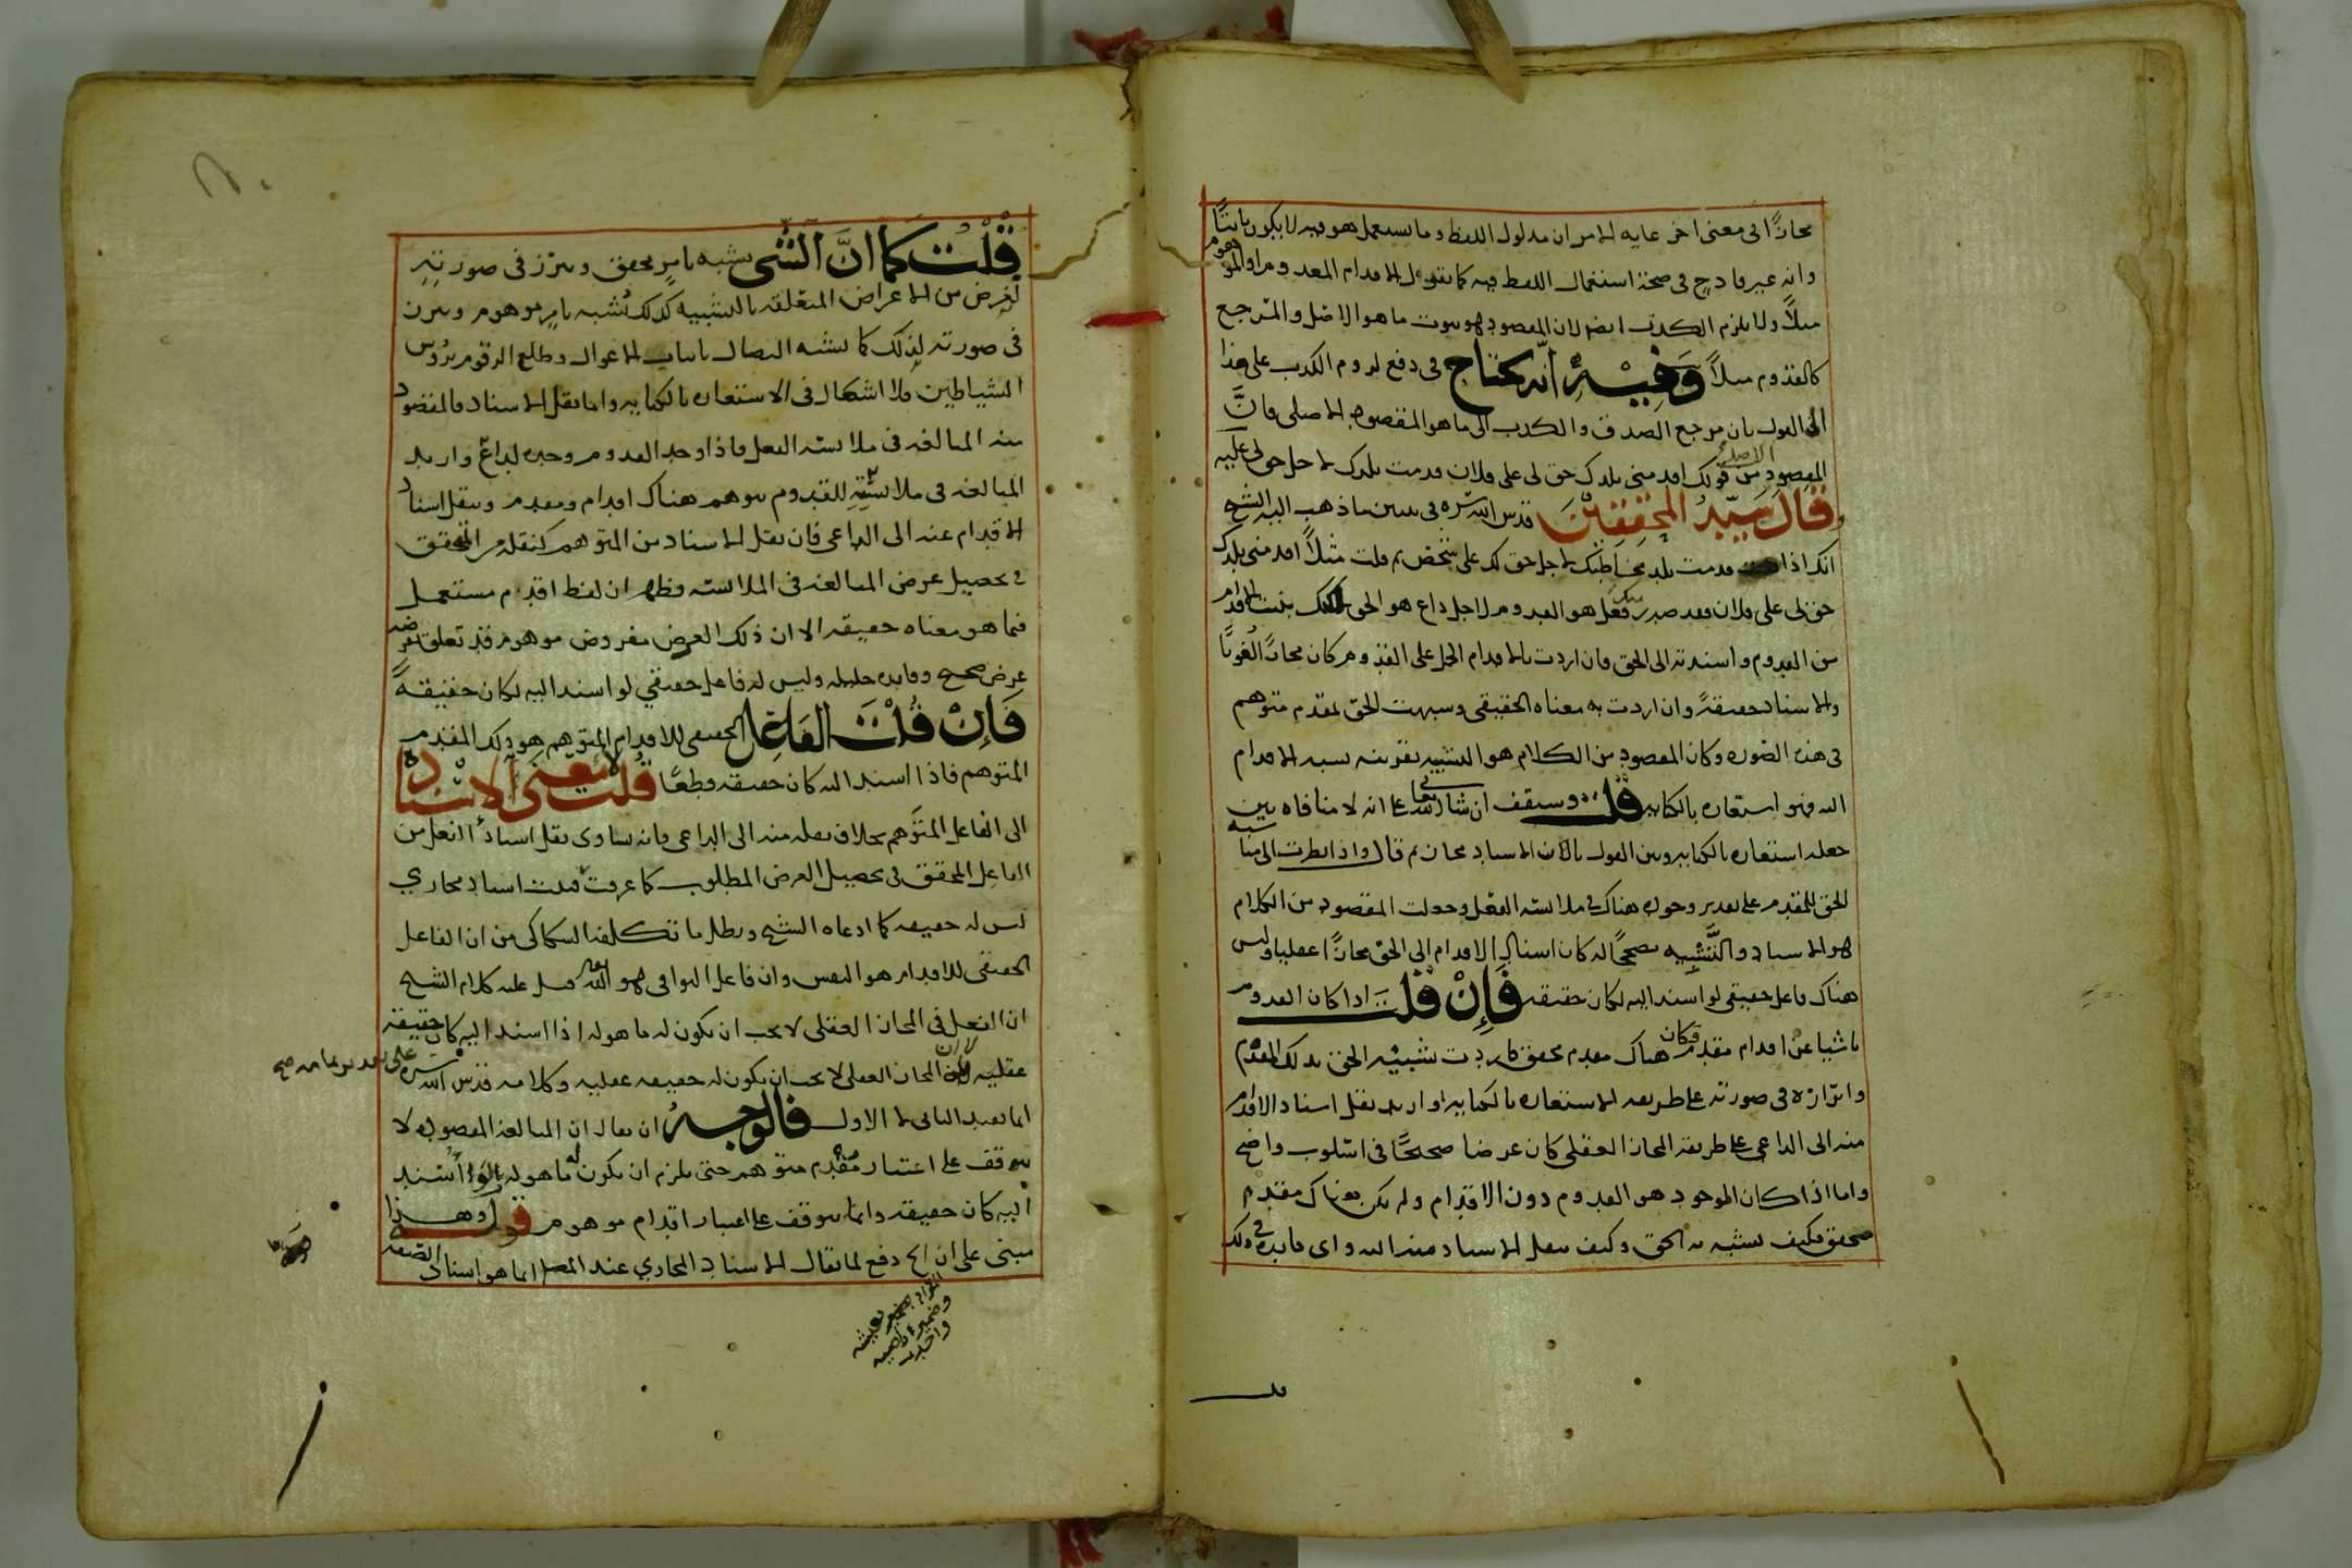 مجازا في معنى اخر غايه الامر ان مدلول اللفظ وما يستعمل هو فيه لا يكون ثابتا
وانه غير قادح في صحة استعمال اللفظ فيه كما تقول الاقدام المعدوم او الموهوم
مثلا ولا يلزم الكذب ايضا لان المقصود هو ثبوت ما هو الاصل والمرجع
كالقدوم مثلا وَفِيْهِ انّه يحتاج في دفع لزوم الكذب على هذا
الى القول بان مرجع الصدق والكذب الى ما هو المقصود الاصلي فانَّ
المقصود الاصلي من قولك اقدمني بلدك حق لي على فلان قدمت بلدك لاجل حق لي عليه
قَالَ سَيّدُ المحققِيْنَ قدس الله سره في تبيين ما ذهب اليه الشيخ
انك اذا قدمت بلد مخاطبك لاجل حق لك على شخص ثم قلت مثلاً اقدمني بلدك
حق لي على فلان فقد صدر منك فعل هو القدوم لاجل داع هو الحق لكنك بنيت الاقدام
من القدوم واسندته الى الحق فان اردت بالاقدام الحمل على القدوم كان مجازًا لغويًا
والاسناد حقيقةً وان اردت به معناه الحقيقي وشبهت الحق بمقدم متوهم
في هذه الصوره وكان المقصود من الكلام هو التشبيه بقرينه نسبه الاقدام
اليه فهو استعاره بالكنايه قلت وستقف ان شاء الله تعالى على انه لا منافاه بين
جعله استعاره بالكنايه وبين القول بان الاسناد مجاز ثم قال واذا نظرت الى مناسبه
الحق للمقدم على تقدير وجوده هناك في ملابسته الفعل وجعلت المقصود من الكلام
هو الاسناد والتَّشْبيه مصححًا له كان اسناد الاقدام الى الحق مجازًا عقليا وليس
هناك فاعل حقيقي لو اسند اليه لكان حقيقه فَاِنْ قُلْتَ اذا كان القدوم
ناشيا عن اقدام مقدم فكان هناك مقدم محقق فاردت تشبيه الحق بذلك المقدم
وابرازه في صورته على طريقه الاستعاره بالكنايه او اريد نقل اسناد الاقدام
منه الى الداعي على طريقه المجاز العقلي كان غرضا صحيحًا في اسلوب واضح
واما اذا كان الموجود هو القدوم دون الاقدام ولم يكن هناك مقدم
محقق فكيف يشبه به الحق وكيف ينقل الاسناد منه اليه واي فايده في ذلك
قلْت كَما انَّ الشَّى يشبه بامرٍ محقق ويبرز في صورته
لغرض من الاعراض المتعلقه بالتشبيه كذلك يُشبه بامرٍ موهوم ويبرز
في صورته لذلك كما يشبه النصال بانياب الاغوال وطلع الزقوم برؤس
الشياطين ولا اشكال في الاستعاره بالكنايه واما نقل الاسناد فالمقصود
منه المبالغه في ملابسته الفعل فاذا وجد القدوم وحده لداعٍ واريد
المبالغه في ملابستِه للقدوم يتوهم هناك اقدام ومقدم وينقل اسناد
الاقدام عنه الى الداعي فان نقل الاسناد من المتوهم كنقله من المحقق
في تحصيل غرض المبالغه في الملابسه فظهر ان لفظ اقدم مستعمل
فيما هو معناه حقيقه الا ان ذلك الغرض مفروض موهوم قد تعلق بفرضه
غرض صحيح وفايده جليله وليس له فاعل حقيقي لو اسند اليه لكان حقيقةً
فَاِنْ قُلْتَ الفَاعل الحقيقي للاقدام المتوهم هو ذلك المقدم
المتوهم فاذا اسند اليه كان حقيقه قطعًا قُلت لا معنى لاسناده
الى الفاعل المتوهم بخلاف نقله منه الى الداعي فانه يساوي نقل اسناد الفعل من
الفاعل المحقق في تحصيل الغرض المطلوب كما عرفت فثبت اسناد مجازي
ليس له حقيقه كما ادعاه الشيخ وبطل ما تكلفه السكاكي من ان الفاعل
الحقيقي للاقدام هو النفس وان فاعل البواقي هو الله تعالى كلام الشيخ
ان الفعل في المجاز العقلي لا يجب ان يكون له ما هو له اذا اسند اليه كان حقيقه
عقليه لا ان المجاز العقلي لا يجب ان يكون له حقيقه عقليه وكلامه قدس الله سره على تقدير تمامه صح
انما يفيد الثاني لا الاول فالوجه ان يقال ان المبالغه المقصوده لا
يتوقف على اعتبار مقدم متوهم حتى يلزم ان يكون له ما هو له لو اُسند
اليه كان حقيقه وانما يتوقف على اعتبار اقدام موهوم قوله وهذا
مبنى على ان الخ دفع لما يقال الاسناد المجازي عند المص انما هو اسناد الصفه